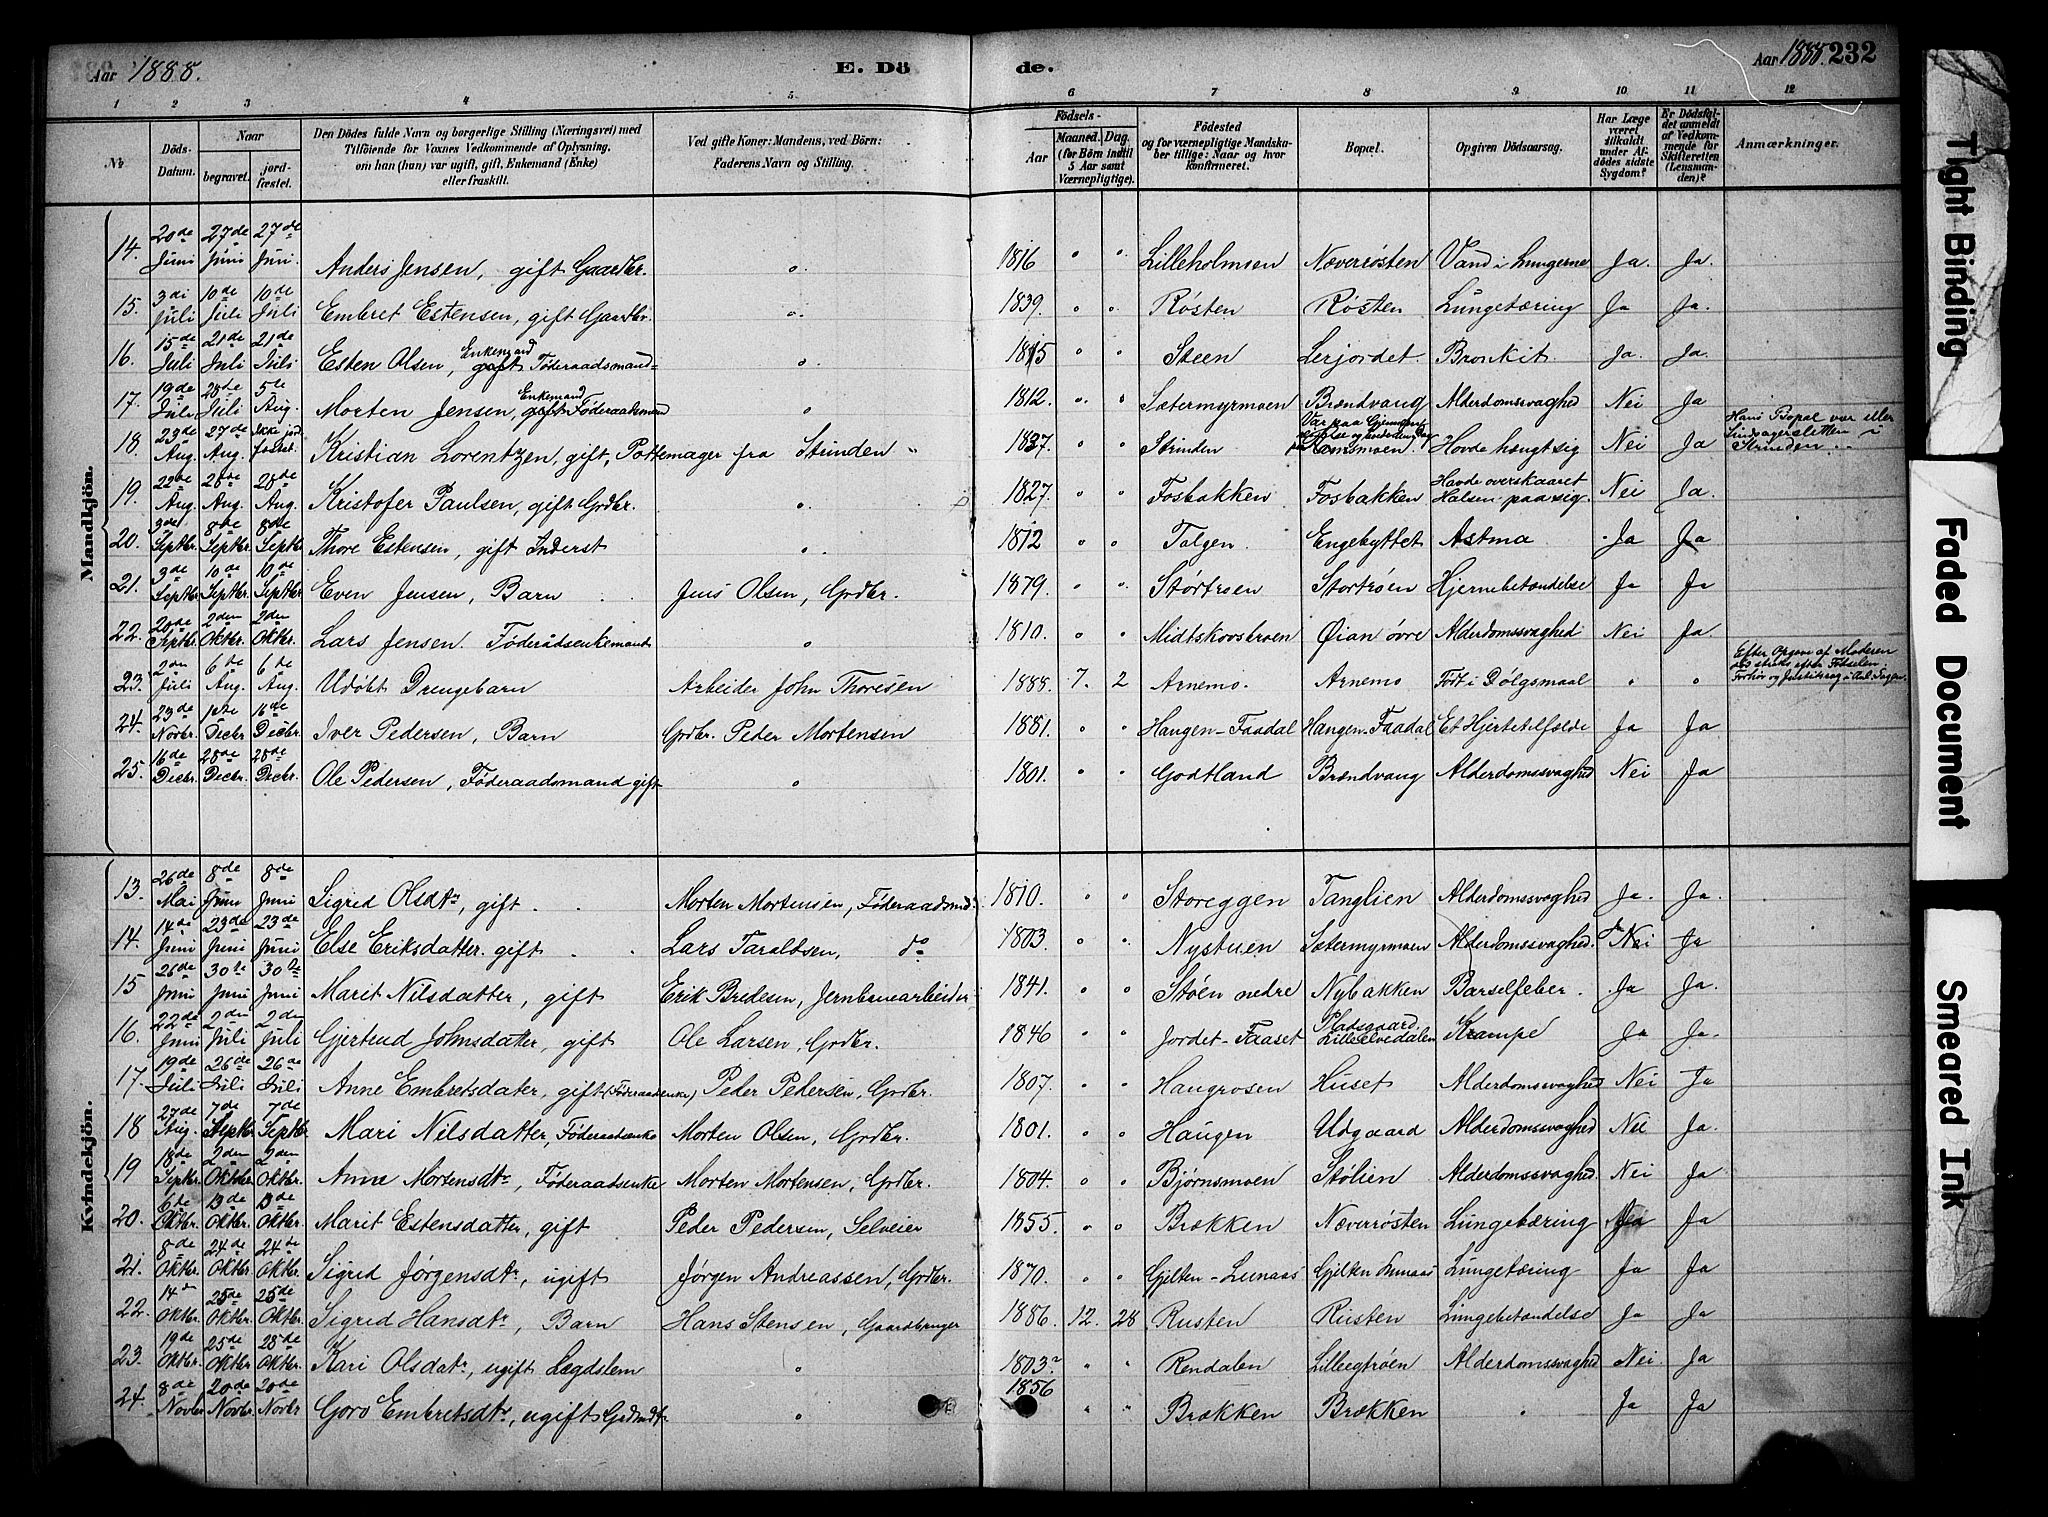 Aar 1888.
E. Dö
de.
Aar 1888. 232
1 2 3 4 5 6 7 8 9. 10. 11. 12
No
Döds-Datum.
Naar
begravet.
jordfæstet.
Den Dödes fulde Navn og borgerlige Stilling (Næringsvei) med Tilföiende for Voxnes Vedkommende af Oplysning, om han (hun) var ugift, gift, Enkemand (Enke) eller fraskilt.
Ved gifte Koner: Mandens, ved Börn: Faderens Navn og Stilling.
Födsels-
Aar
Maaned. Dag.
(for Börn indtil 5 Aar samt Værnepligtige).
Födested og for værnepligtige Mandskaber tillige: Naar og hvor konfirmeret.
Bopæl.
Opgiven Dödsaarsag.
Har Læge været tilkaldt under Afdödes sidste Sygdom?
Er Dödsfaldet anmeldt af Vedkommende for Skifteretten (Lensmanden)?
Anmærkninger.
Mandkjön.
14. 20de Juni 27de Juni 27de Juni. Anders Jensen, gift Gaardbr. " 1816 " " Lilleholmsen Næverrösten Vand i Lungerne Ja. Ja.
15. 3di Juli 10de Juli 10de Juli Embret Estensen, gift Gaardbr. " 1839. " " Røsten Røsten Lungetæring Ja Ja.
16. 15de Juli 21de Juli 21de Juli Esten Olsen, gift Enkemand Føderaadsmand " 1815 " " Steen Lerjordet. Bronkit. Ja. Ja.
17. 19de Juli 28de Juli 5te Aug. Morten Jensen, gift Enkemand Føderaadsmand " 1812. " " Sætermyrmoen Brændvang Alderdomssvaghed Nei Ja
18. 23de Aug. 27de Aug. Ikke jordfæstet. Kristian Lorentzen, gift, Pottemager fra Strinden " 1837. " " Strinden Var paa Ramsmoen. Havde hængt sig Nei Ja Hans Bopæl var eller i Strinden.
19. 22de Aug. 28de Aug. 28de Aug. Kristofer Paulsen, gift Grdbr. " 1827. " " Fosbakken Fosbakken Havde overskaaret Halsen paa sig. Nei Ja.
20. 3de Septbr. 8de Septbr. 8de Septbr Thore Estensen, gift Inderst " 1812 " " Tolgen. Engebyttet Astma Ja Ja
21. 3de Septbr. 10de Septbr. 10de Septbr Even Jensen, Barn Jens Olsen, Grdbr. 1879. " " Stortroen Stortröen Hjernebetændelse Ja Ja
22. 20de Septbr. 2den Oktbr. 2den Oktbr. Lars Jensen. Føderådsenkemand " 1810. " " Midtskovsbroen Øian övre Alderdomssvaghed Nei Ja.
23. 2den Juli 6te Aug. 6te Aug. Udøbt Drengebarn Arbeider John Thoresen 1888. 7. 2 Arnemo. Arnemo Født i Dølgsmaal " " Efter Opgave af Moderen død straks efter Fødselen. Forhør og
24. 23de Novbr. 1ste Decbr. 16de Decbr. Iver Pedersen, Barn Grdbr. Peder Mortensen 1881. " " Haugen-Faadal Haugen-Faadal Et Hjertetilfælde Ja Ja
25. 16de Decbr. 28de Decbr. 28de Decbr. Ole Pedersen, Føderaadsmand gift " 1801. " " Godtland Brændvang Alderdomssvaghed Nei Ja
Kvindekjön.
13. 26de Mai 8de Juni 8de Juni Sigrid Olsdtr, gift Morten Mortensen, Føderaadsmd. 1810. " " Storeggen Tanglien Alderdomssvaghed Ja. Ja.
14. 14de Juni 23de Juni 23de Juni Else Eriksdatter. gift Lars Taraldsen, do 1803. " " Nystuen Sætermyrmoen Alderdomssvaghed. Nei Ja
15 26de Juni 30te Juni 30te Juni Marit Nilsdatter, gift Erik Bredesen, Jernbanearbeider 1841. " " Støen nedre Nybakken Barselfeber. Ja Ja.
16. 22de Juni 2den Juli 2den Juli Gjertrud Johnsdatter, gift Ole Larsen, Grdbr. 1846 " " Jordet-Faaset Pladsgaard. Lilleelvedalen Krampe Ja Ja.
17. 19de Juli 26de Juli 26de Juli Anne Embretsdatter, gift (Føderaadsenke) Peder Pedersen, Grdbr. 1807. " " Haugrosen Huset Alderdomssvaghed Nei Ja
18 27de Aug. 7de Septbr 7de Septbr Mari Nilsdatter, Føderaadsenke Morten Olsen, Grdbr. 1801. " " Haugen Udgaard Alderdomssvaghed Nei Ja.
19 18de Septbr. 2den Oktbr 2den Oktbr. Anne Mortensdtr, Føderaadsenke Morten Mortensen, Grdbr. 1804. " " Bjørnsmoen Stølien Alderdomssvaghed. Nei Ja
20. 6te Oktbr. 13de Oktbr. 13de Oktbr. Marit Estensdatter, gift Peder Pedersen, Selveier 1855. " " Brækken Næverrösten Lungetæring Ja Ja
21. 8de Oktbr. 24de Oktbr. 24de Oktbr. Sigrid Jörgensdtr, ugift Jörgen Andreassen, Grdbr. 1870. " " Gjelten-Lunaas Gjelten Lunaas Lungetæring Ja Ja
22. 14d Oktbr. 25de Oktbr. 25de Oktbr. Sigrid Hansdtr, Barn Hans Stensen, Gaardbruger 1886. 12. 28 Rusten Rusten Lungebetændelse Ja Ja
23. 19de Oktbr. 25de Oktbr. 28de Oktbr. Kari Olsdatr, ugift Lægdslem " 1803? " " Rendalen Lilleegtröen Alderdomssvaghed Nei Ja
24. 8de Novbr 20de Novbr. 20de Novbr Goro Embretsdtr, ugift Grdmdtr " 1856 " " Brækken Brækken " Ja Ja
Tight Binding
Faded Document
Smeared Ink